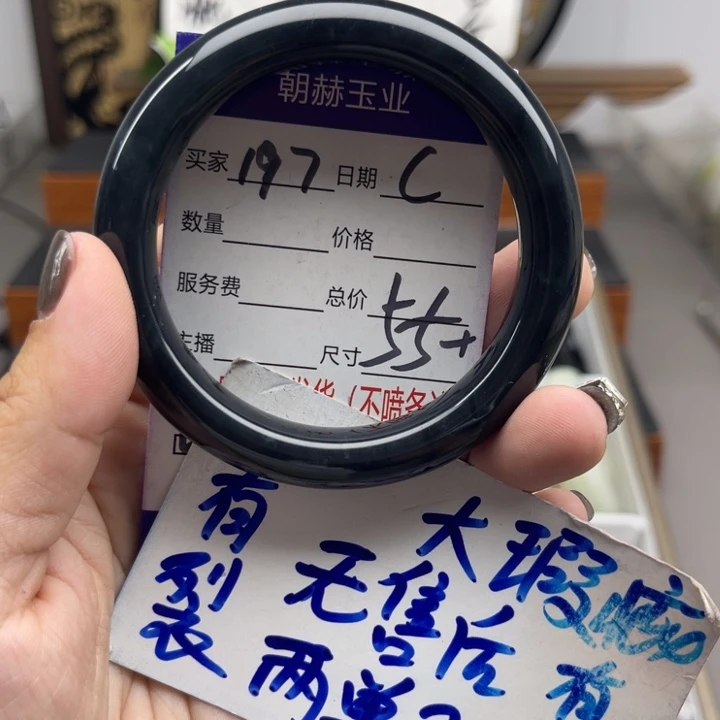 朝赫玉业
买家 197 日期 C
数量 价格
服务费 总价
主播 尺寸 55+
发货（不喷条
有裂
无售后
大瑕疵
两单
有